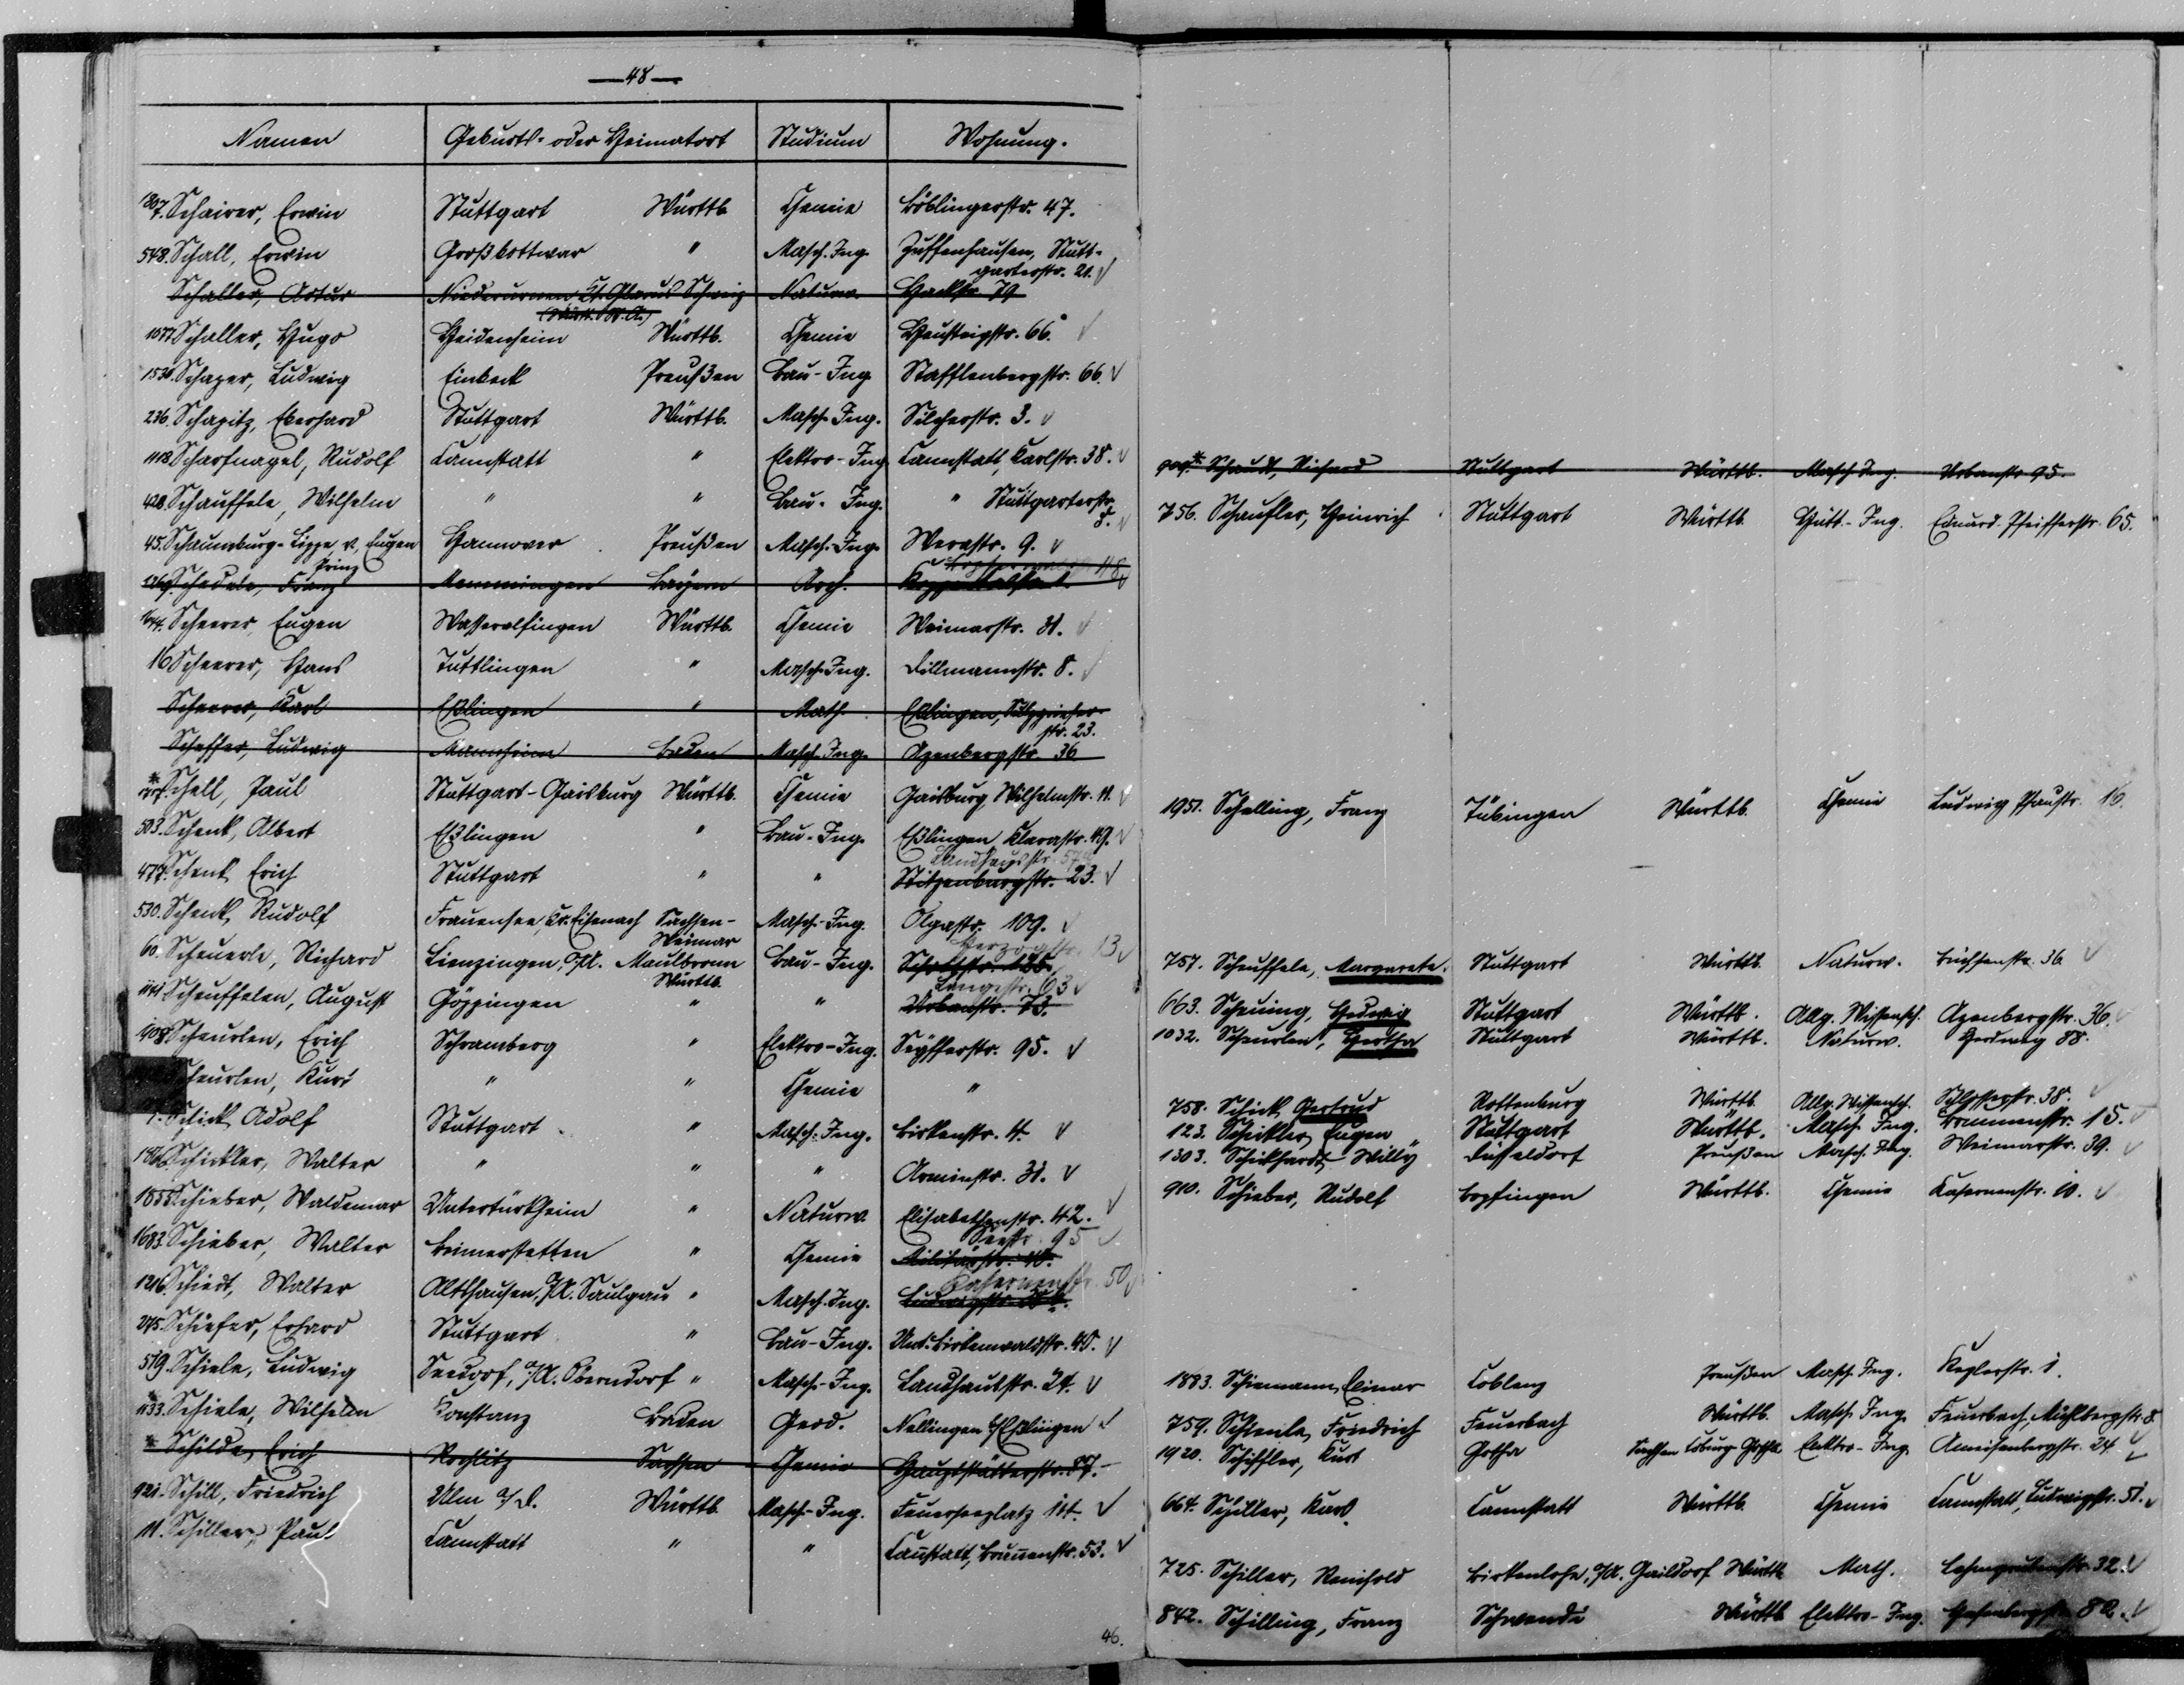 — 48 —
Namen Geburts- oder Heimatort Studium Wohnung.
1807. Schairer, Erwin Stuttgart Württb. Chemie Böblingerstr. 47.
548. Schall, Erwin Großbottwar " Masch. Ing. Zuffenhausen, Stutt-
garterstr. 21. √
Schaller, Artur Niederurnen Kt. Glarus Schweiz Naturw. Hackstr. 79
1077 Schaller, Hugo Heidenheim Württb. Chemie Heusteigstr. 66. √
1530. Schaper, Ludwig Einbeck Preußen Bau-Ing. Stafflenbergstr. 66. √
236. Schapitz, Eberhard Stuttgart Württb. Masch.-Ing. Silcherstr. 3. √
1118 Scharfnagel, Rudolf Cannstatt " Elektro-Ing. Cannstatt, Karlstr. 38. √
420. Schauffele, Wilhelm " " Bau-Ing. " Stuttgarterstr.
8. √
45. Schaumburg-Lippe, v., Eugen Hannover Preußen Masch.-Ing. Werastr. 9. √
Prinz
1269. Schedele, Franz Memmingen Bayern Arch.
1644. Scheerer, Eugen Wasseralfingen Württb. Chemie Weimarstr. 31. √
16 Scheerer, Hans Tuttlingen " Masch.-Ing. Dillmannstr. 8. √
Scheerer, Karl Eßlingen " Math. Eßlingen, Sulzgrieser-
str. 23.
Scheffer, Ludwig Mannheim Baden Masch.-Ing. Azenbergstr. 36
* Schell, Paul Stuttgart-Gaisburg Württb. Chemie Gaisburg, Wilhelmstr. 11. √
503. Schenk, Albert Eßlingen " Bau-Ing. Eßlingen Klarastr. 49. √
Landhausstr.
477. Schenk Erich Stuttgart " " Stitzenburgstr. 23. √
530. Schenk, Rudolf Frauensee, Kr. Eisenach Sachsen- Masch.-Ing. Olgastr. 109. √
Weimar Herzogstr. 13 √
60. Scheuerle, Richard Lienzingen, O/A. Maulbronn Bau-Ing.
Württb. Langestr. 63 √
1141 Scheuffelen, August Göppingen " " Urbanstr. 73.
1408 Scheurlen, Erich Schramberg " Elektro-Ing. Seyfferstr. 95. √
Scheurlen, Kurt " " Chemie "
Schick Adolf Stuttgart " Masch.-Ing. Birkenstr. 4. √
Schickler, Walter " " " Arminstr. 31. √
1855 Schieber, Waldemar Untertürkheim " Naturw. Elisabethenstr. 42. √
Seestr. 95 √
1683. Schieber, Walter Beimerstetten " Chemie Militärstr.
Kasernenstr. 50 √
1216. Schiedt, Walter Altshausen, O/A. Saulgau " Masch.-Ing. Ludwigstr.
275. Schiefer, Erhard Stuttgart " Bau-Ing. Unt. Birkenwaldstr. 40. √
519. Schiele, Ludwig Seedorf, O/A. Oberndorf " Masch.-Ing. Landhausstr. 24. √
* 1133. Schiele, Wilhelm Konstanz Baden Geod. Nellingen b/Eßlingen √
* Schilde, Erich Rochlitz Sachsen Chemie Hauptstätterstr. 87.
921. Schill, Friedrich Ulm a/D. Württb. Masch.-Ing. Feuerseeplatz 14. √
11. Schiller, Paul Cannstatt " " Cannstatt, Brunnenstr. 53. √
46.
909.* Schaudt, Richard Stuttgart Württb. Masch-Ing. Urbanstr. 95.
756. Schaufler, Heinrich Stuttgart Württb. Hütt.-Ing. Eduard-Pfeifferstr. 65.
1951. Schelling, Franz Tübingen Württb. Chemie Ludwig Pfaustr. 16.
757. Scheuffele, Margarete. Stuttgart Württb. Naturw. Büchsenstr. 36 √
663. Scheuing, Hedwig Stuttgart Württb. Allg. Wissensch. Azenbergstr. 36. √
1032. Scheurlen, Hertha Stuttgart Württb. Naturw. Herdweg 88.
758. Schick Gertrud Rottenburg Württb. Allg. Wissensch. Schloßerstr. 38. √
123. Schickler, Eugen Stuttgart Württb. Masch. Ing. Brunnenstr. 15. √
1303. Schickhardt, Willy Düsseldorf Preußen Masch. Ing. Weimarstr. 39. √
910. Schieber, Rudolf Bopfingen Württb. Chemie Kasernenstr. 10. √
1883. Schiemann, Einar Coblenz Preußen Masch. Ing. Keplerstr. 1.
759. Schienle, Friedrich Feuerbach Württb. Masch Ing. Feuerbach, Mühlbergstr. 8.
1920. Schiffler, Kurt Gotha Sachsen Coburg-Gotha Elektro-Ing. Ameisenbergstr. 24 √
664. Schiller, Karl. Cannstatt Württb. Chemie Cannstatt, Ludwigstr. 51. √
725. Schiller, Reinhold Birkenlohe, O/A. Gaildorf Württb. Math. Lehmgrubenstr. 32. √
842. Schilling, Franz Schwendi Württb Elektro-Ing. Hasenbergstr. 82. √